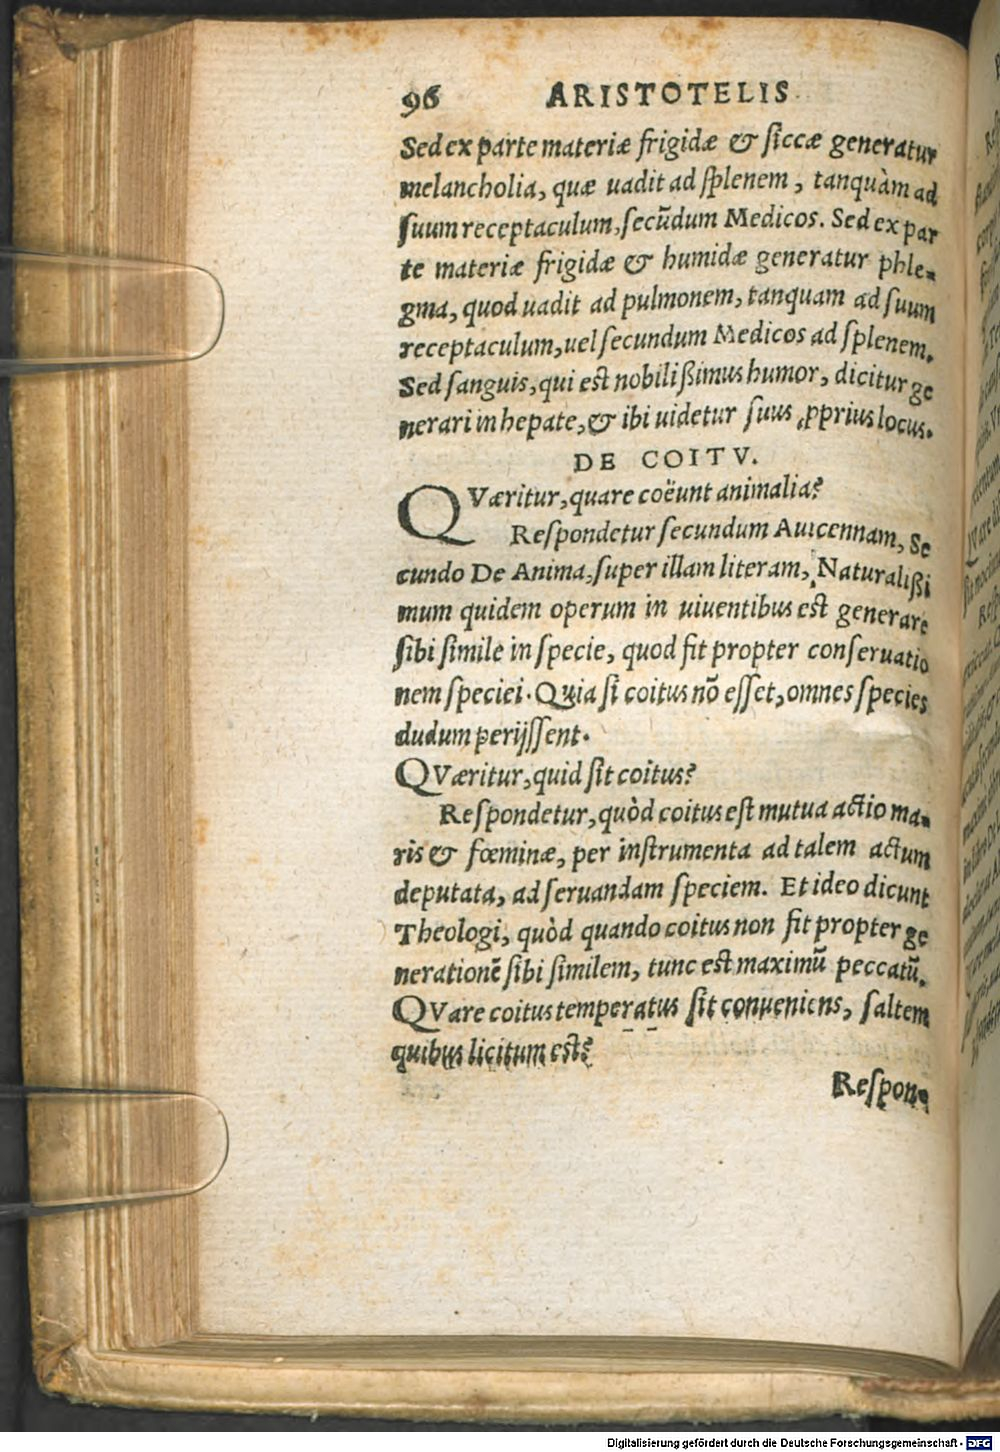 96 ARISTOTELIS
Sed ex parte materiæ frigidæ & ſiccæ generatur
melancholia, quæ uadit ad ſplenem, tanquàm ad
ſuum receptaculum, ſecũdum Medicos. Sed ex par
te materiæ frigidæ & humidæ generatur phle-
gma, quod uadit ad pulmonem, tanquam ad ſuum
receptaculum, uel ſecundum Medicos ad ſplenem.
Sed ſanguis, qui eſt nobilißimus humor, dicitur ge
nerari in hepate, & ibi uidetur ſuus ꝓprius locus.
DE COITV.
QVæritur, quare coëunt animalia?
Reſpondetur ſecundum Auicennam, Se
cundo De Anima, ſuper illam literam, Naturalißi
mum quidem operum in uiuentibus eſt generare
ſibi ſimile in ſpecie, quod fit propter conſeruatio
nem ſpeciei. Quia ſi coitus nõ eſſet, omnes ſpecies
dudum perijſſent.
QVæritur, quid ſit coitus?
Reſpondetur, quòd coitus eſt mutua actio ma-
ris & fœminæ, per inſtrumenta ad talem actum
deputata, ad ſeruandam ſpeciem. Et ideo dicunt
Theologi, quòd quando coitus non fit propter ge
nerationẽ ſibi ſimilem, tunc eſt maximũ peccatũ.
QVare coitus temperatus ſit conueniens, ſaltem
quibus licitum eſt?
Reſpon-
Digitalisierung gefördert durch die Deutsche Forschungsgemeinschaft - DFG